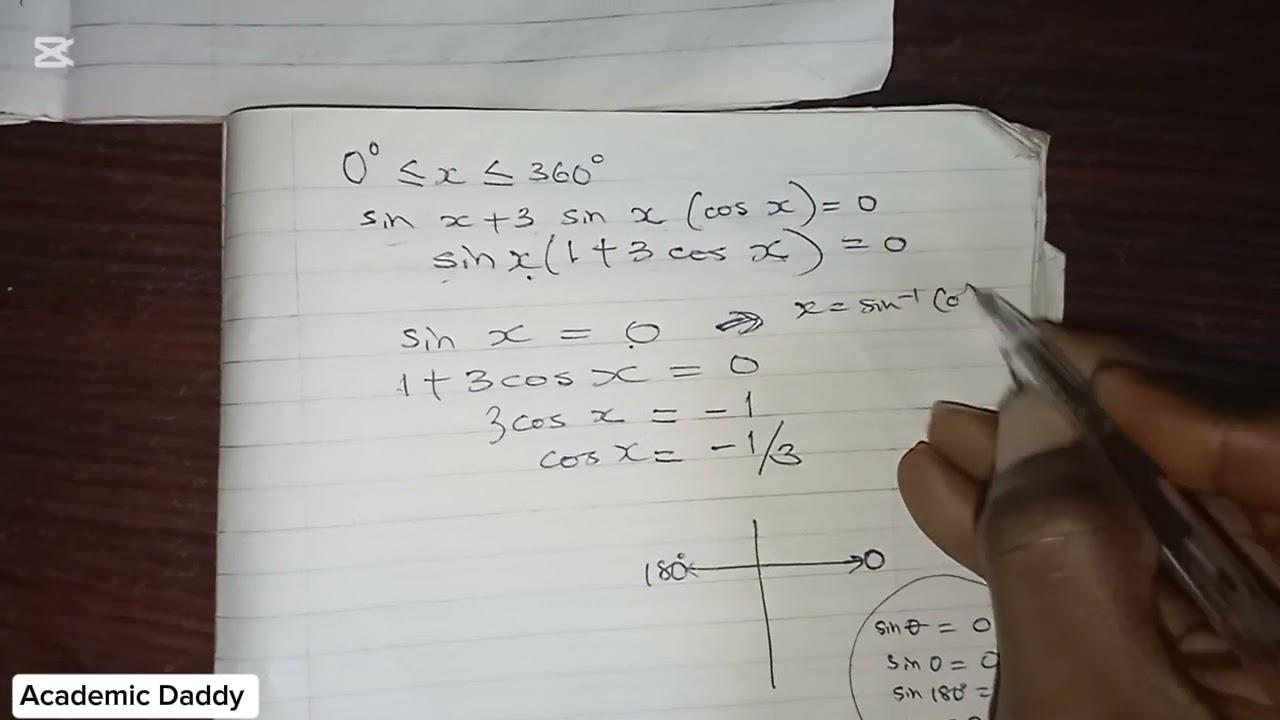 0° ≤ x ≤ 360°
sin x + 3 sin x (cos x) = 0
sin x (1 + 3 cos x) = 0
x = sin⁻¹ (0
sin x = 0 ⇒
1 + 3 cos x = 0
3 cos x = -1
cos x = -1/3
180° 0
sin θ = 0
sin 0 = 0
sin 180° =
Academic Daddy